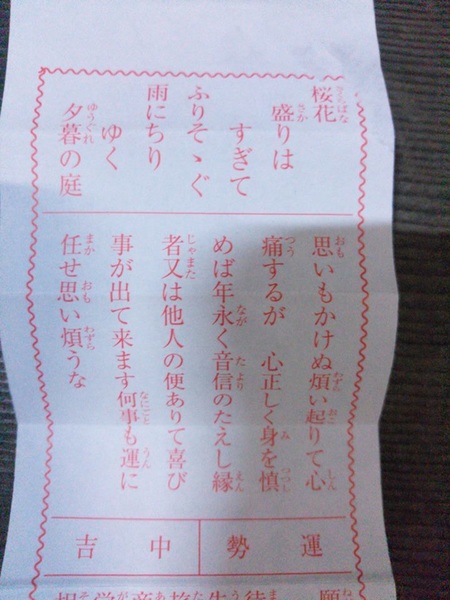 桜花
盛りは
すぎて
ふりそゝぐ
雨にちり
ゆく
夕暮の庭
思いもかけぬ煩い起りて心
痛するが　心正しく身を慎
めば年永く音信のたえし縁
者又は他人の便ありて喜び
事が出て来ます何事も運に
任せ思い煩うな
運勢
中吉